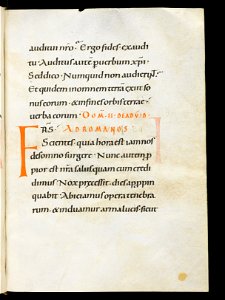 auditui nrō. Ergo fides exaudi
tu. Auditus aute p uerbum xpi.
Sed dico. Numquid non audierunt.
Et quidem in omnem terrā exiit so
nus eorum. & in fines orbis terrae
uerba eorum. DOM II DE ADV D
FRS. AD ROMANOS
Scientes. quia hora est iam nos
de somno surgere. Nunc autem p
pior est nra salus. quam cum credi
dimus. Nox precessit. dies appropin
quabit. Abiciamus opera tenebra
rum. & induamur arma lucis. sicut